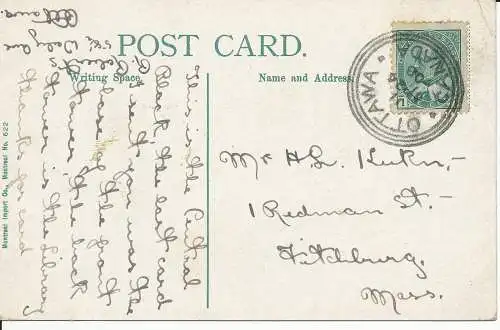 POST CARD.
Writing Space.
Name and Address.
This is the Central
Block the last card
I sent you was the
base of the front
tower & the back
tower is the Library
thanks for card
Ottawa.
OTTAWA
CANADA
Mr H. L. Kuhn,-
1 Redman St.-
Fitchburg,
Mass.
Montreal Import Co., Montreal No. 622